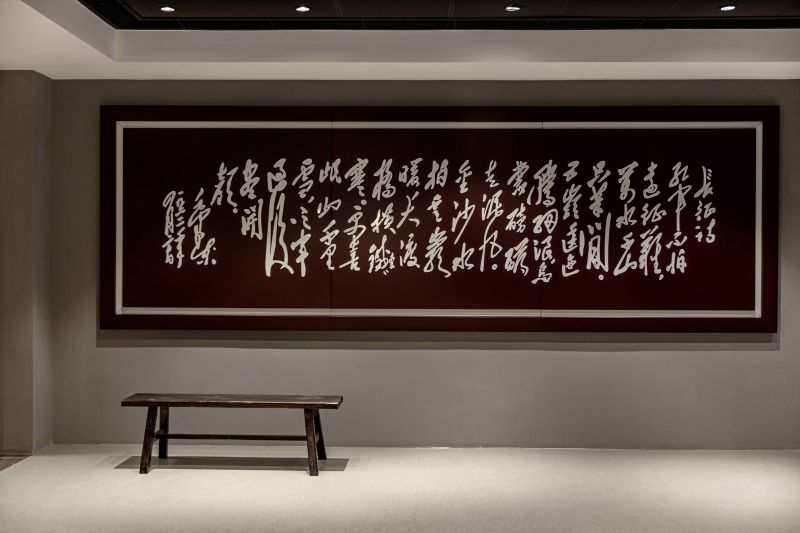 長征詩
紅軍不怕
遠征難
萬水千山
只等閒
五嶺逶迤
騰細浪烏
蒙磅礴
走泥丸
金沙水
拍雲崖
暖大渡
橋横鐵索
寒更喜
岷山千里
雪三軍
過後
盡開
顏
毛澤東